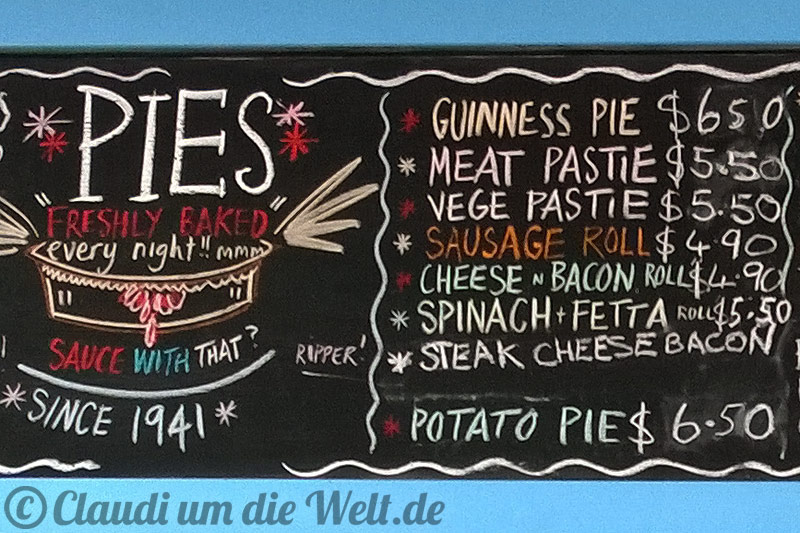 PIES
"FRESHLY BAKED"
every night!! mmm
SAUCE WITH THAT?
RIPPER!
SINCE 1941
GUINNESS PIE $6.50
MEAT PASTIE $5.50
VEGE PASTIE $5.50
SAUSAGE ROLL $4.90
CHEESE N BACON ROLL $4.90
SPINACH + FETTA ROLL $5.50
STEAK CHEESE BACON
POTATO PIE $6.50
© Claudi um die Welt.de